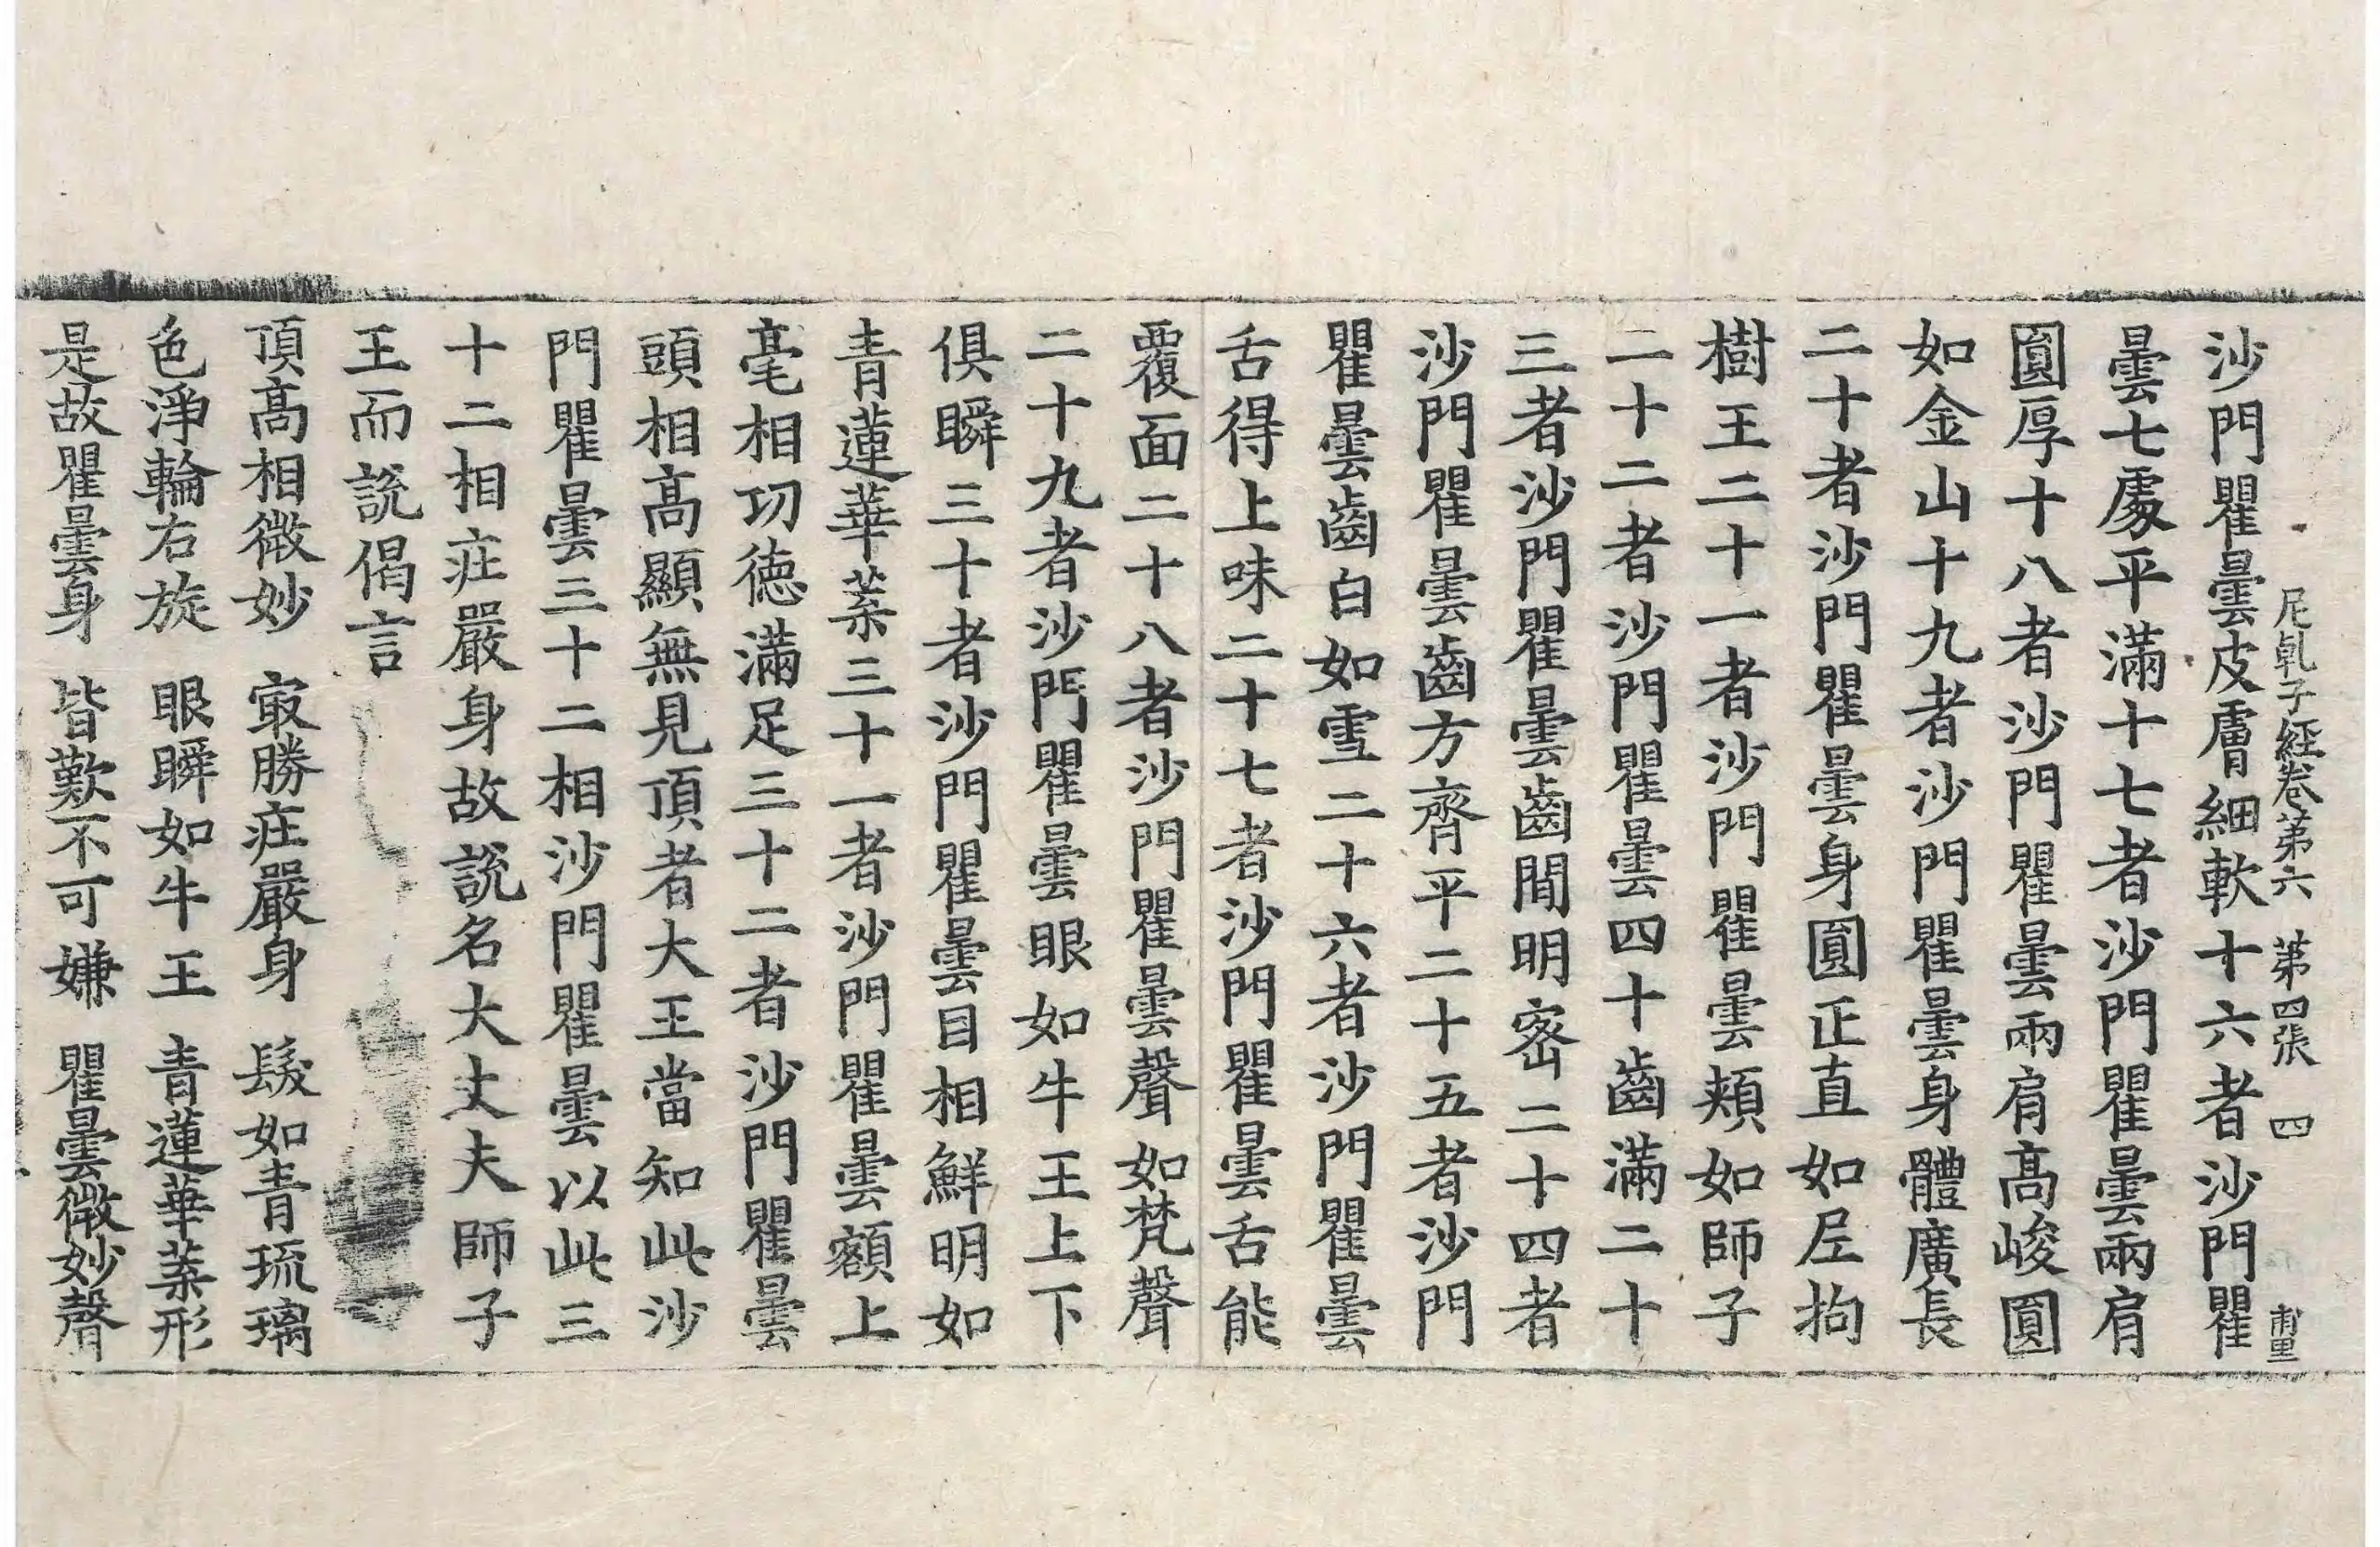 尼乹子経卷苐六　苐四張　四
沙門瞿曇皮膚細軟十六者沙門瞿
曇七䖏平滿十七者沙門瞿曇兩肩
圓厚十八者沙門瞿曇兩肩髙峻圓
如金山十九者沙門瞿曇身體廣長
二十者沙門瞿曇身圓正直如𡰱拘
樹王二十一者沙門瞿曇頰如師子
二十二者沙門瞿曇四十齒滿二十
三者沙門瞿曇齒間明宻二十四者
沙門瞿曇齒方齊平二十五者沙門
瞿曇齒白如雪二十六者沙門瞿曇
舌得上味二十七者沙門瞿曇舌能
覆面二十八者沙門瞿曇聲如梵聲
二十九者沙門瞿曇眼如牛王上下
俱瞬三十者沙門瞿曇目相鮮明如
青蓮華葉三十一者沙門瞿曇額上
毫相㓛德滿足三十二者沙門瞿曇
頭相髙顯無見頂者大王當知此沙
門瞿曇三十二相沙門瞿曇以此三
十二相㽵嚴身故說名大丈夫師子
王而說偈言
頂髙相微妙　㝡勝㽵嚴身　髮如青琉璃
色淨輪右旋　眼瞬如牛王　青蓮華葉形
是故瞿曇身　皆歎不可嫌　瞿曇微妙聲